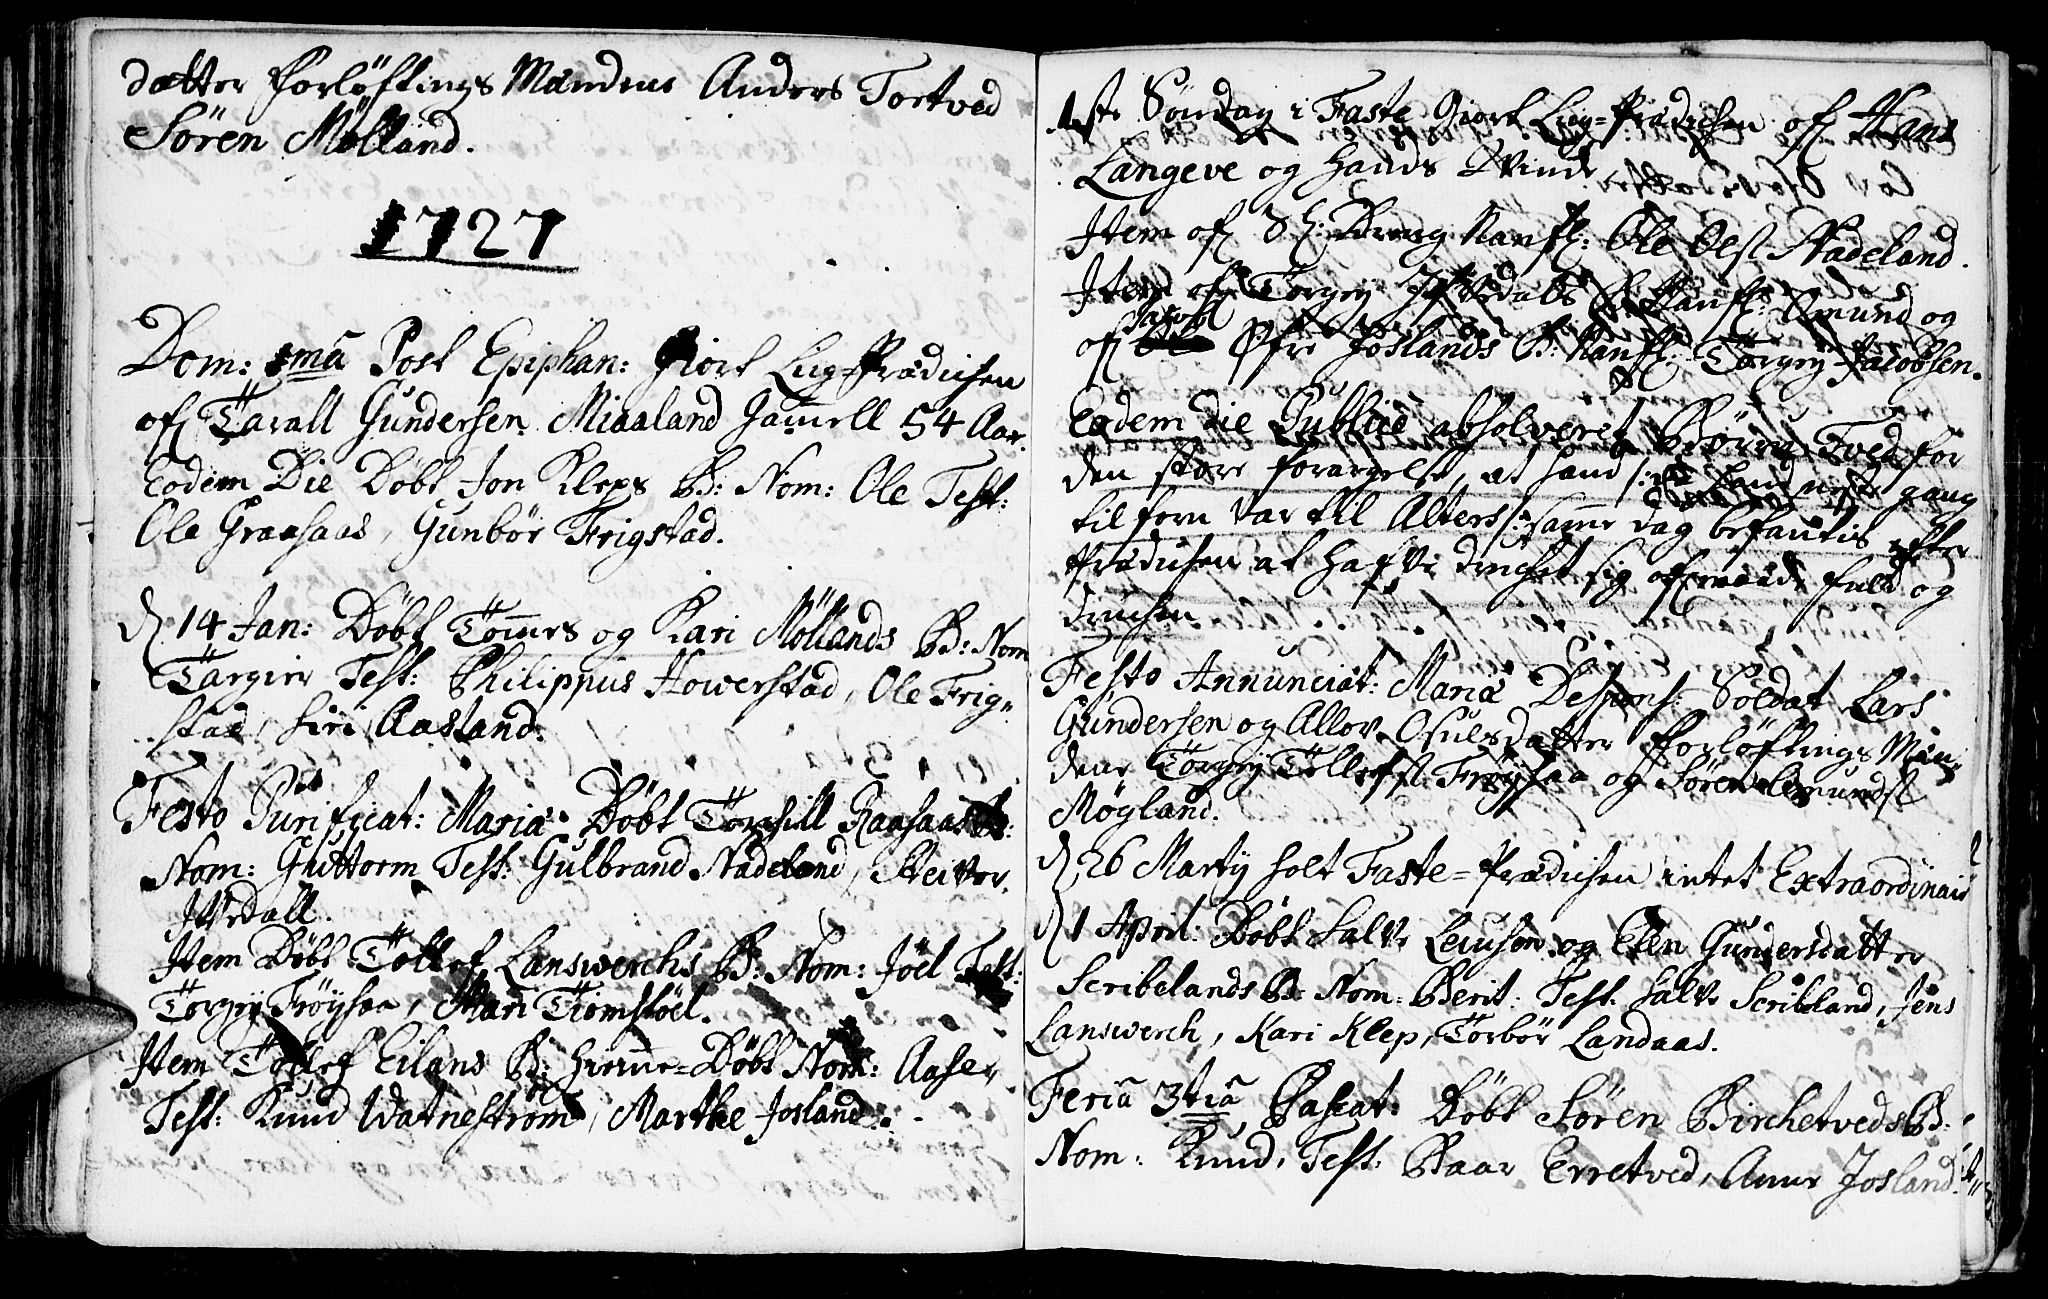 datter Forløftings Mændene Anders Tortved
Søren Mølland.
1727
Dom: 1ma Post Epiphan: Giort Liig-Prædichen
of Tarall Gundersen Miaaland Gamell 54 Aar.
Eodem Die Døbt Jon Kleps B: Nom: Ole Test:
Ole Graasaas, Gunbør Frigstad.
D 14 Jan: Døbt Tomes og Kari Møllands B: Nom
Targier Test: Philippus Howerstad, Ole Frig=
stad, Siri Aasland.
Festo Purificat: Mariæ Døbt Torchill Raasaas B:
Nom: Guttorm Test: Gulbrand Nadeland,
Ifverdall.
Item Døbt Tollef Lanswerchs B: Nom: Jöel Test:
Torgrj Frøysaa, Mari Tiomstøel.
Item Tollef Eilans B: Hieme=Døbt Nom: Aase,
Test: Knud Watnestrøm, Marthe Josland.
1ste Søndag i Faste Giort Liig=Prædichen of Hans
Langeve og Hands Qvinde
Item of S: Dreng Nanfl: Ole Olss Nadeland.
Item of Torgrj Ifverdals B: Nanfl: Omund og
of Jacob Øfre Joslands B: Nanfl: Torgrj Jacobsen.
Eodem Die Publicè absolveret Børre Tved for
den store forargelse, at hand /: hand nest gang
til forn var til Alters :/ samme dag befantis efter
Prædichen at hafve druchet sig ofvermaade fuld og
druchen
Festo Annunciat: Mariæ Despons: Soldat Lars
Gundersen og Allov Osulsdatter Forløftings Mæn=
dene Torgrj Tollefss Frøysaa og Søren Omundss
Møgland.
D 26 Martij holt Faste=Prædichen intet Extraordinair
D 1 April: Døbt Salve Leusen og Elen Gundersdatter
Scribelands B: Nom: Berit: Test: Salve Scribland, Jens
Lanswerch, Kari Klep, Torbør Landaas.
Feriâ 3tiâ Pascat: Døbt Søren Birchetveds B:
Nom: Knud, Test: Baar Erretved, Anne Josland.